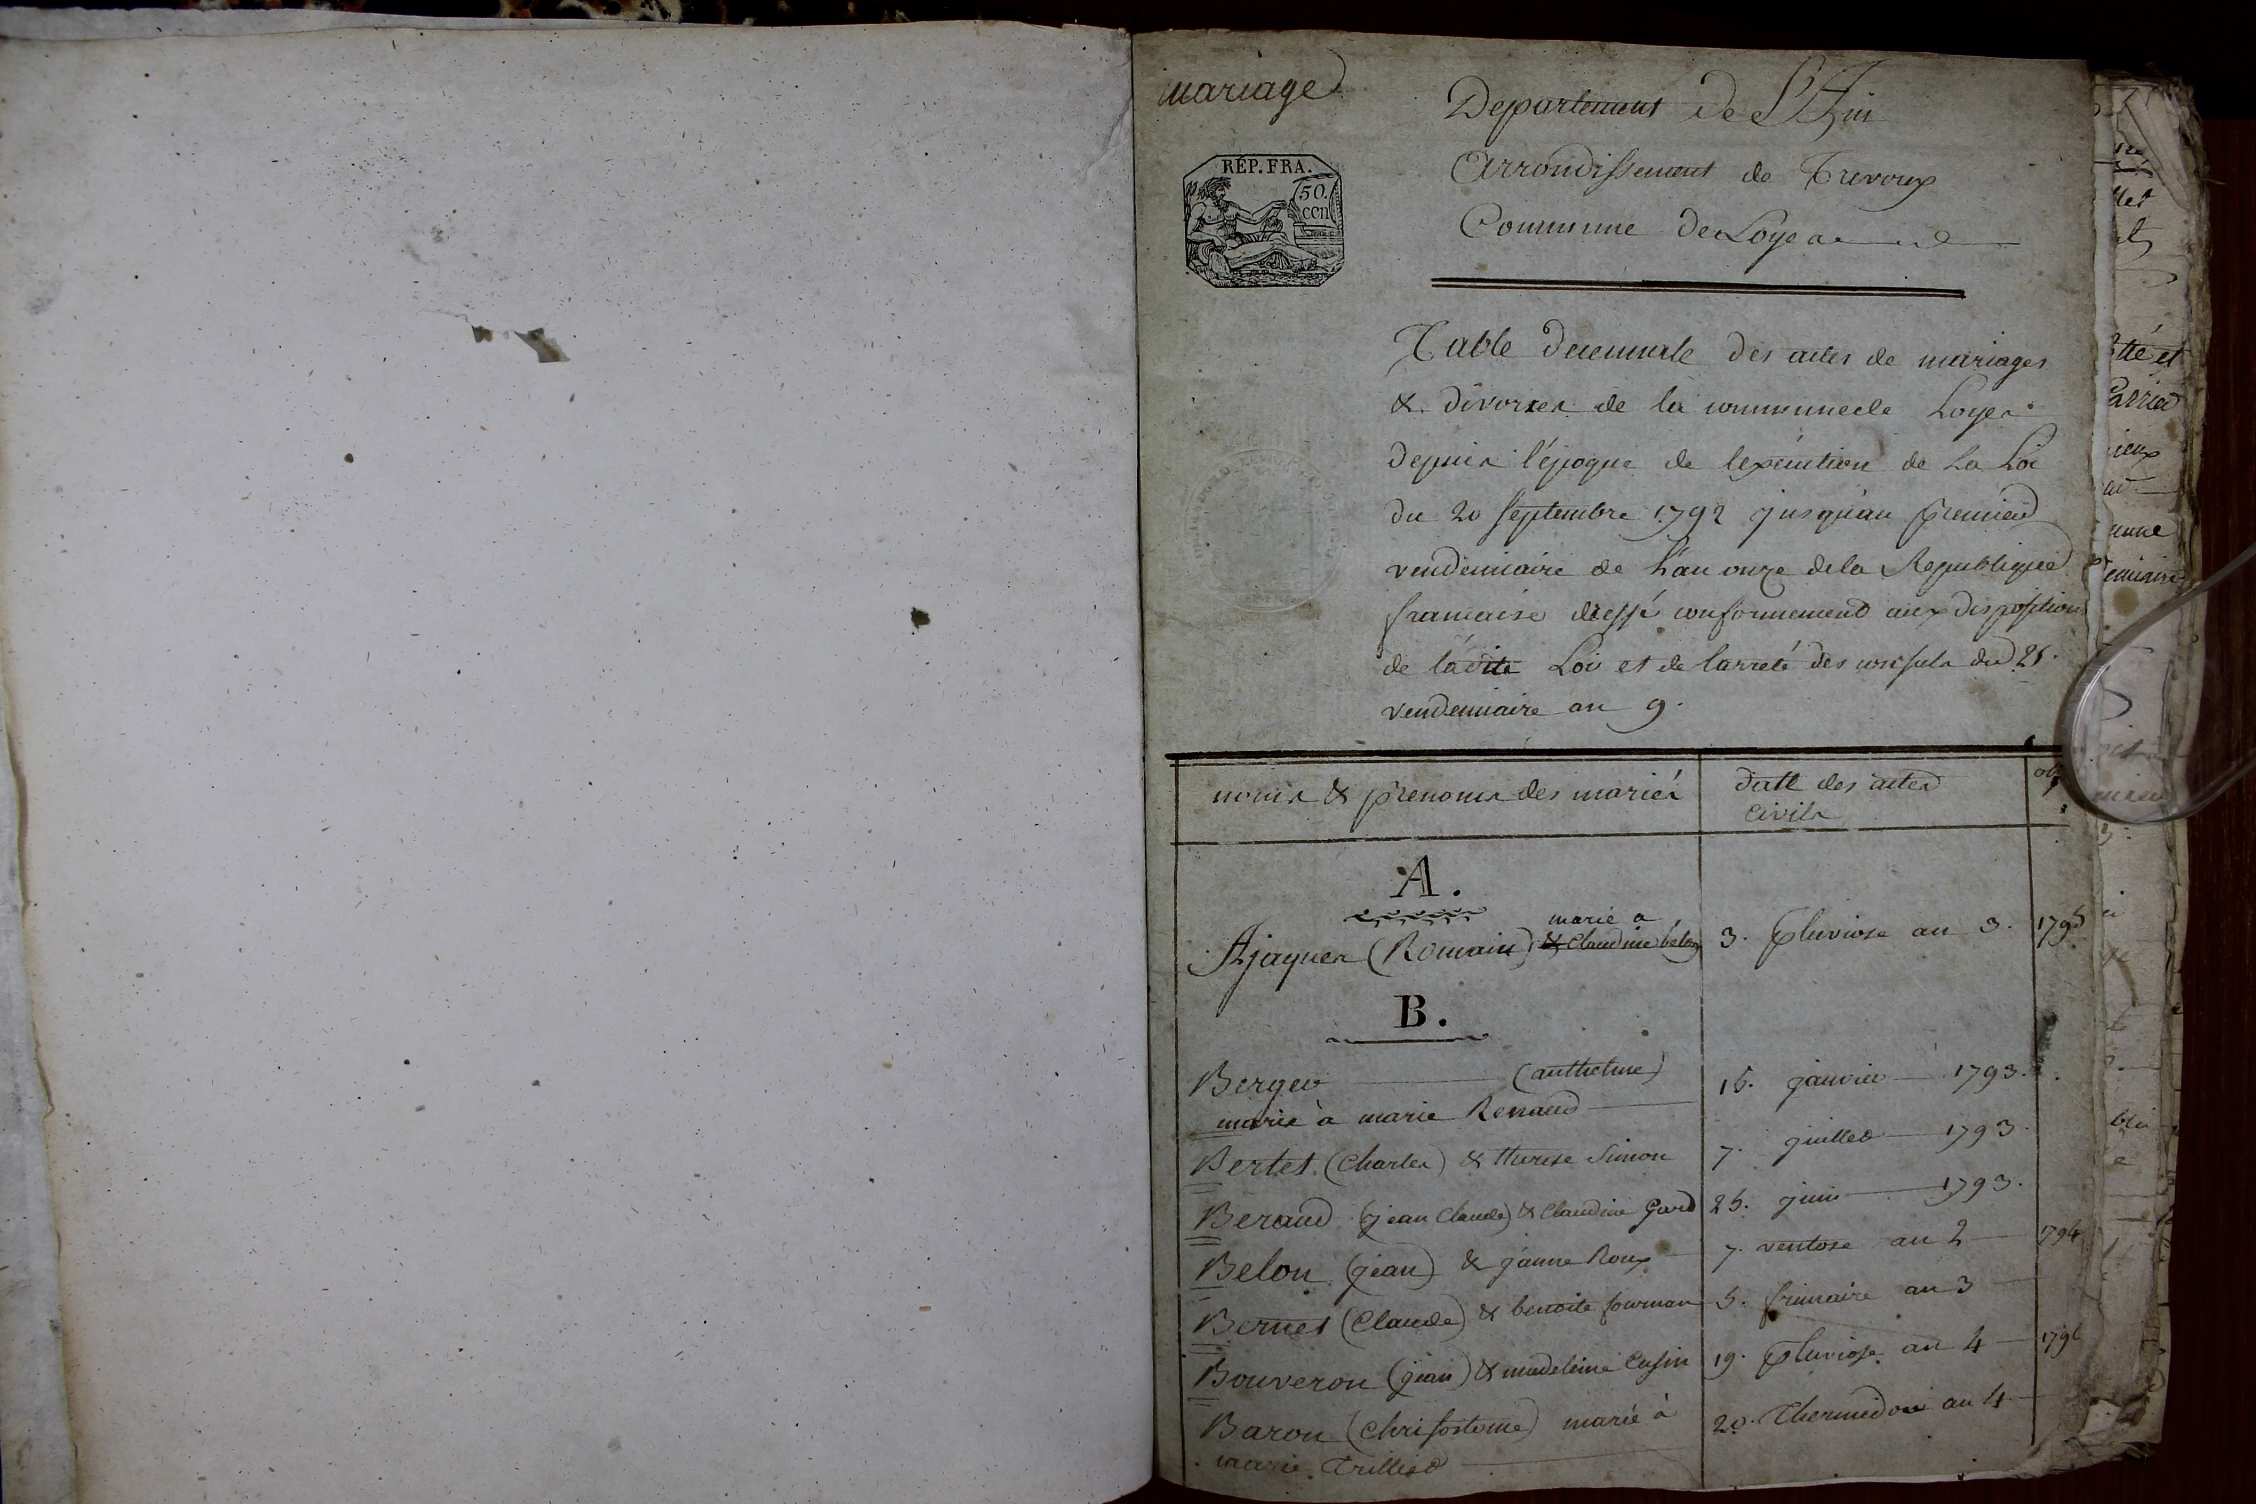 mariage
RÉP. FRA.
50.
cen
Departement de L'Ain
Arrondissement de Trevoux
Commune de Loyes
Table decennale des actes de mariages
& divorces de la commune de Loyes
depuis l'époque de lexécution de La Loi
du 20 septembre 1792 jusqu'au premier
vendemiaire de L'an onze de la Republique
francaise dressé conformement aux dispositions
de ladite Loi et de larreté des consuls du 25.
vendemiaire an 9.
noms & prenoms des mariés
date des actes
civils
ob
A.
marié a
Ajaques (Romain) & Claudine belon 3. Pluviose an 3. 1795
B.
Berger (anthelme) 15. janvier 1793.
marié à marie Renaud
Bertet (Charles) & therese Simon 7. juillet 1793.
Beraud (jean Claude) & Claudine Gard 25. juin 1793.
Belon (jean) & jeanne Roux 7. ventose an 2 1794
Bernet (Claude) & benoite fourman 5. frimaire an 3
Bouveron (jean) & madeleine Cusin 19. Pluviose an 4 1796
Baron (Chrisostome) marié à 20. Thermidor an 4
marie Trilliet